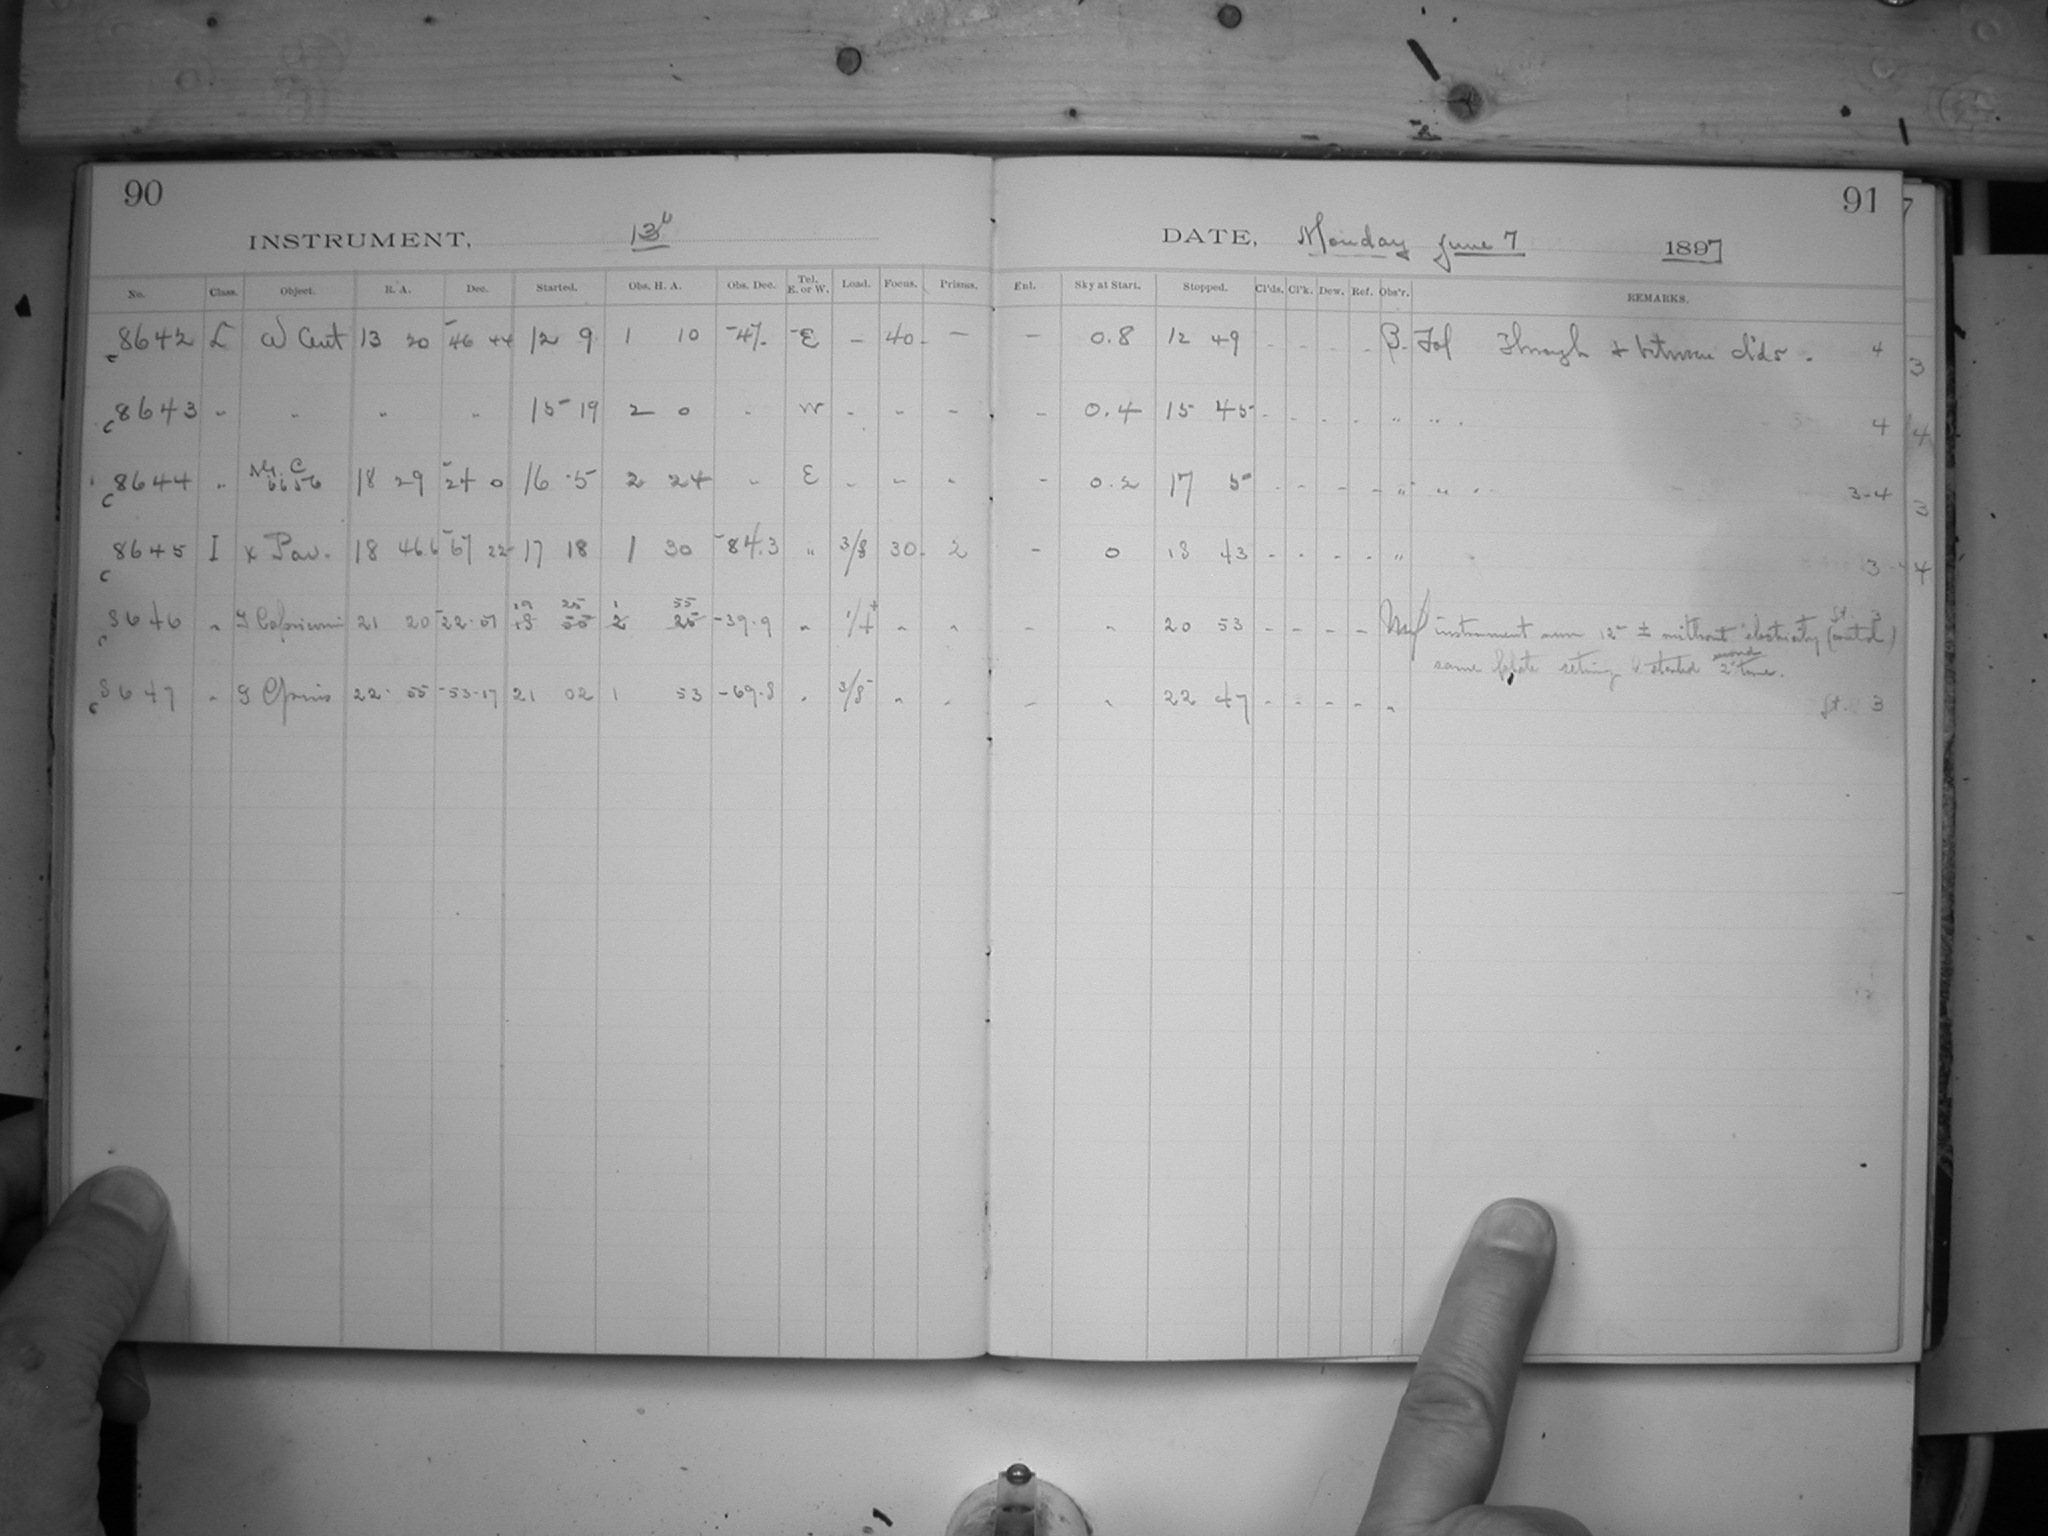 90
INSTRUMENT, 13"
No. Class. Object. R. A. Dec. Started. Obs. H. A. Obs. Dec. Tel. E. or W. Load. Focus. Prisms.
c8642 L ω Cent 13 20 -46 44 12 9 1 10 -47. E - 40. -
c8643 " " " " 15 19 2 0 " W - - -
c8644 " N.G.C. 6656 18 29 -24 0 16 5 2 24 " E - - -
c8645 I κ Pav. 18 46.6 -67 22 17 18 1 30 -84.3 " 3/8 30. 2
19 25 1 55
c8646 " Capricorni 21 20 -22.51 18 55 2 25 -39.9 " 1/4 " "
c8647 " 22 55 -53.17 21 02 1 53 -69.8 " 3/8 " "
91
DATE, Monday June 7 1897
Enl. Sky at Start. Stopped. Cl'ds. Cl'k. Dew. Ref. Obs'r. REMARKS.
- 0.8 12 49 - - - - B. Fol Through & between clds. 4
- 0.4 15 45 - - - - " " . 4
- 0.2 17 5 - - - - " " . 3-4
- 0 18 43 - - - - " 3-4
- " 20 53 - - - - instrument run 12m ± without electricity (control) st. 3
same plate setting & started second 2d time.
- " 22 47 - - - - " st. 3
3
4
3
4